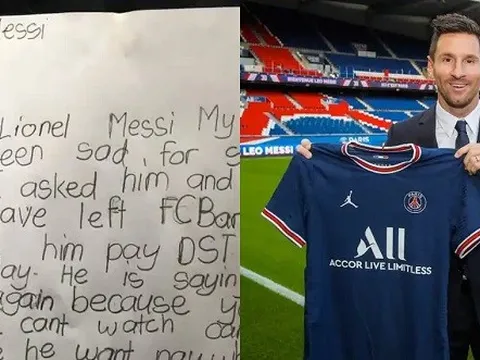 essi
Lionel Messi My
een sad for
asked him and
ave left FCBar
him pay DST
ay. He is sayin
again because y
cant watch
he want pay
LEO MESSI
PARIS
LEO MESSI
PARIS
All
ACCOR LIVE LIMITLESS